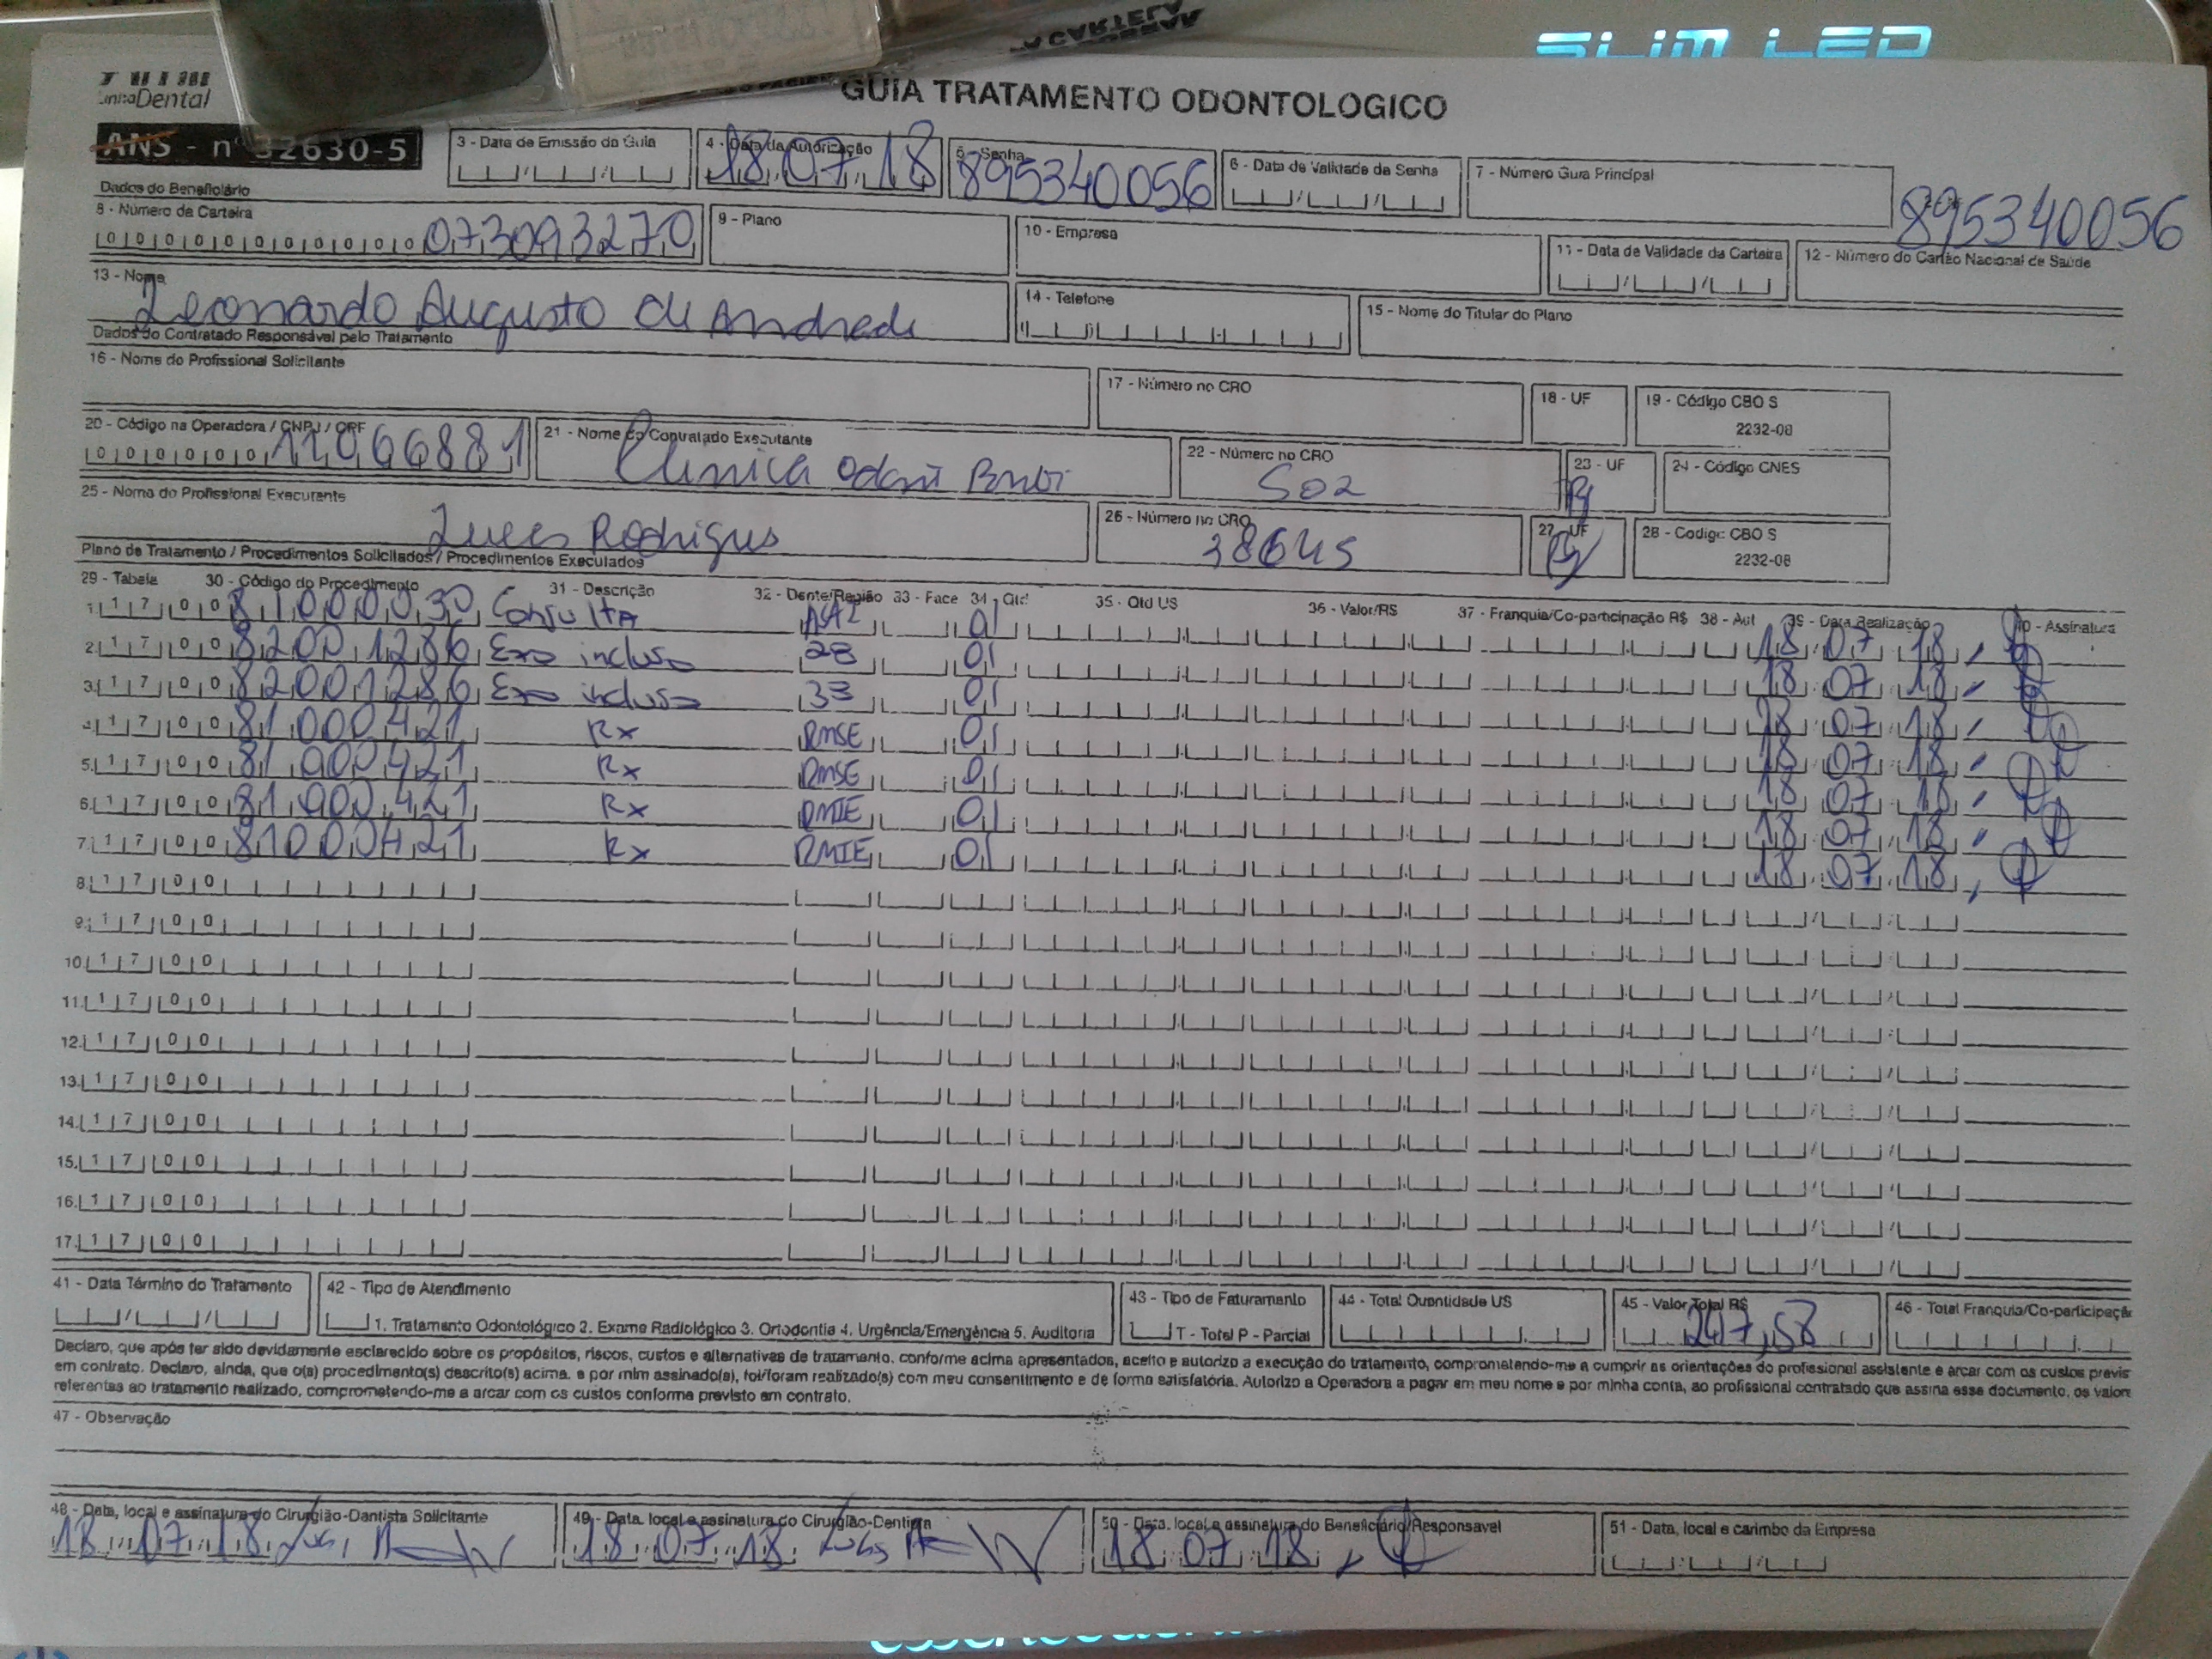 SLIM LED
A CARTELA
UnimDental
GUIA TRATAMENTO ODONTOLOGICO
ANS - nº 32630-5
3 - Data de Emissão da Guia
4 - Data da Autorização
18 07 18
5 - Senha
895340056
6 - Data de Validade da Senha
7 - Número Guia Principal
895340056
Dados do Beneficiário
8 - Número da Carteira
00000000000073093270
9 - Plano
10 - Empresa
11 - Data de Validade da Carteira
12 - Número do Cartão Nacional de Saúde
13 - Nome
Leonardo Augusto de Andrade
14 - Telefone
15 - Nome do Titular do Plano
Dados do Contratado Responsável pelo Tratamento
16 - Nome do Profissional Solicitante
17 - Número no CRO
18 - UF
19 - Código CBO S
2232-08
20 - Código na Operadora / CNPJ / CPF
000000011066881
21 - Nome do Contratado Executante
Clinica Odont
22 - Número no CRO
502
23 - UF
RJ
24 - Código CNES
25 - Nome do Profissional Executante
Lucas Rodrigues
26 - Número no CRO
38645
27 - UF
RJ
28 - Codigo CBO S
2232-08
Plano de Tratamento / Procedimentos Solicitados / Procedimentos Executados
29 - Tabela 30 - Código do Procedimento 31 - Descrição 32 - Dente/Região 33 - Face 34 - Qtd 35 - Qtd US 36 - Valor/RS 37 - Franquia/Co-participação R$ 38 - Aut 39 - Data Realização 40 - Assinatura
1. 17 00 81000030 Consulta ASAI 01 18 07 18
2. 17 00 82001286 Exo incluso 28 01 18 07 18
3. 17 00 82001286 Exo incluso 38 01 18 07 18
4. 17 00 81000421 Rx RMSE 01 18 07 18
5. 17 00 81000421 Rx RMSE 01 18 07 18
6. 17 00 81000421 Rx RMIE 01 18 07 18
7. 17 00 81000421 Rx RMIE 01 18 07 18
8. 17 00
9. 17 00
10. 17 00
11. 17 00
12. 17 00
13. 17 00
14. 17 00
15. 17 00
16. 17 00
17. 17 00
41 - Data Término do Tratamento
42 - Tipo de Atendimento
1. Tratamento Odontológico 2. Exame Radiológico 3. Ortodontia 4. Urgência/Emergência 5. Auditoria
43 - Tipo de Faturamento
T - Total P - Parcial
44 - Total Quantidade US
45 - Valor Total R$
247,58
46 - Total Franquia/Co-participaçã
Declaro, que após ter sido devidamente esclarecido sobre os propósitos, riscos, custos e alternativas de tratamento, conforme acima apresentados, aceito e autorizo a execução do tratamento, comprometendo-me a cumprir as orientações do profissional assistente e arcar com os custos previs
em contrato. Declaro, ainda, que o(s) procedimento(s) descrito(s) acima, e por mim assinado(s), foi/foram realizado(s) com meu consentimento e de forma satisfatória. Autorizo a Operadora a pagar em meu nome e por minha conta, ao profissional contratado que assina esse documento, os valore
referentes ao tratamento realizado, comprometendo-me a arcar com os custos conforme previsto em contrato.
47 - Observação
48 - Data, local e assinatura do Cirurgião-Dentista Solicitante
18 07 18
49 - Data, local e assinatura do Cirurgião-Dentista
18 07 18
50 - Data, local e assinatura do Beneficiário/Responsavel
18 07 18
51 - Data, local e carimbo da Empresa